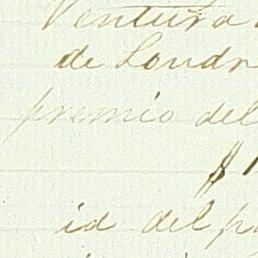 Ventura
de Londr
premio del
$
id del p